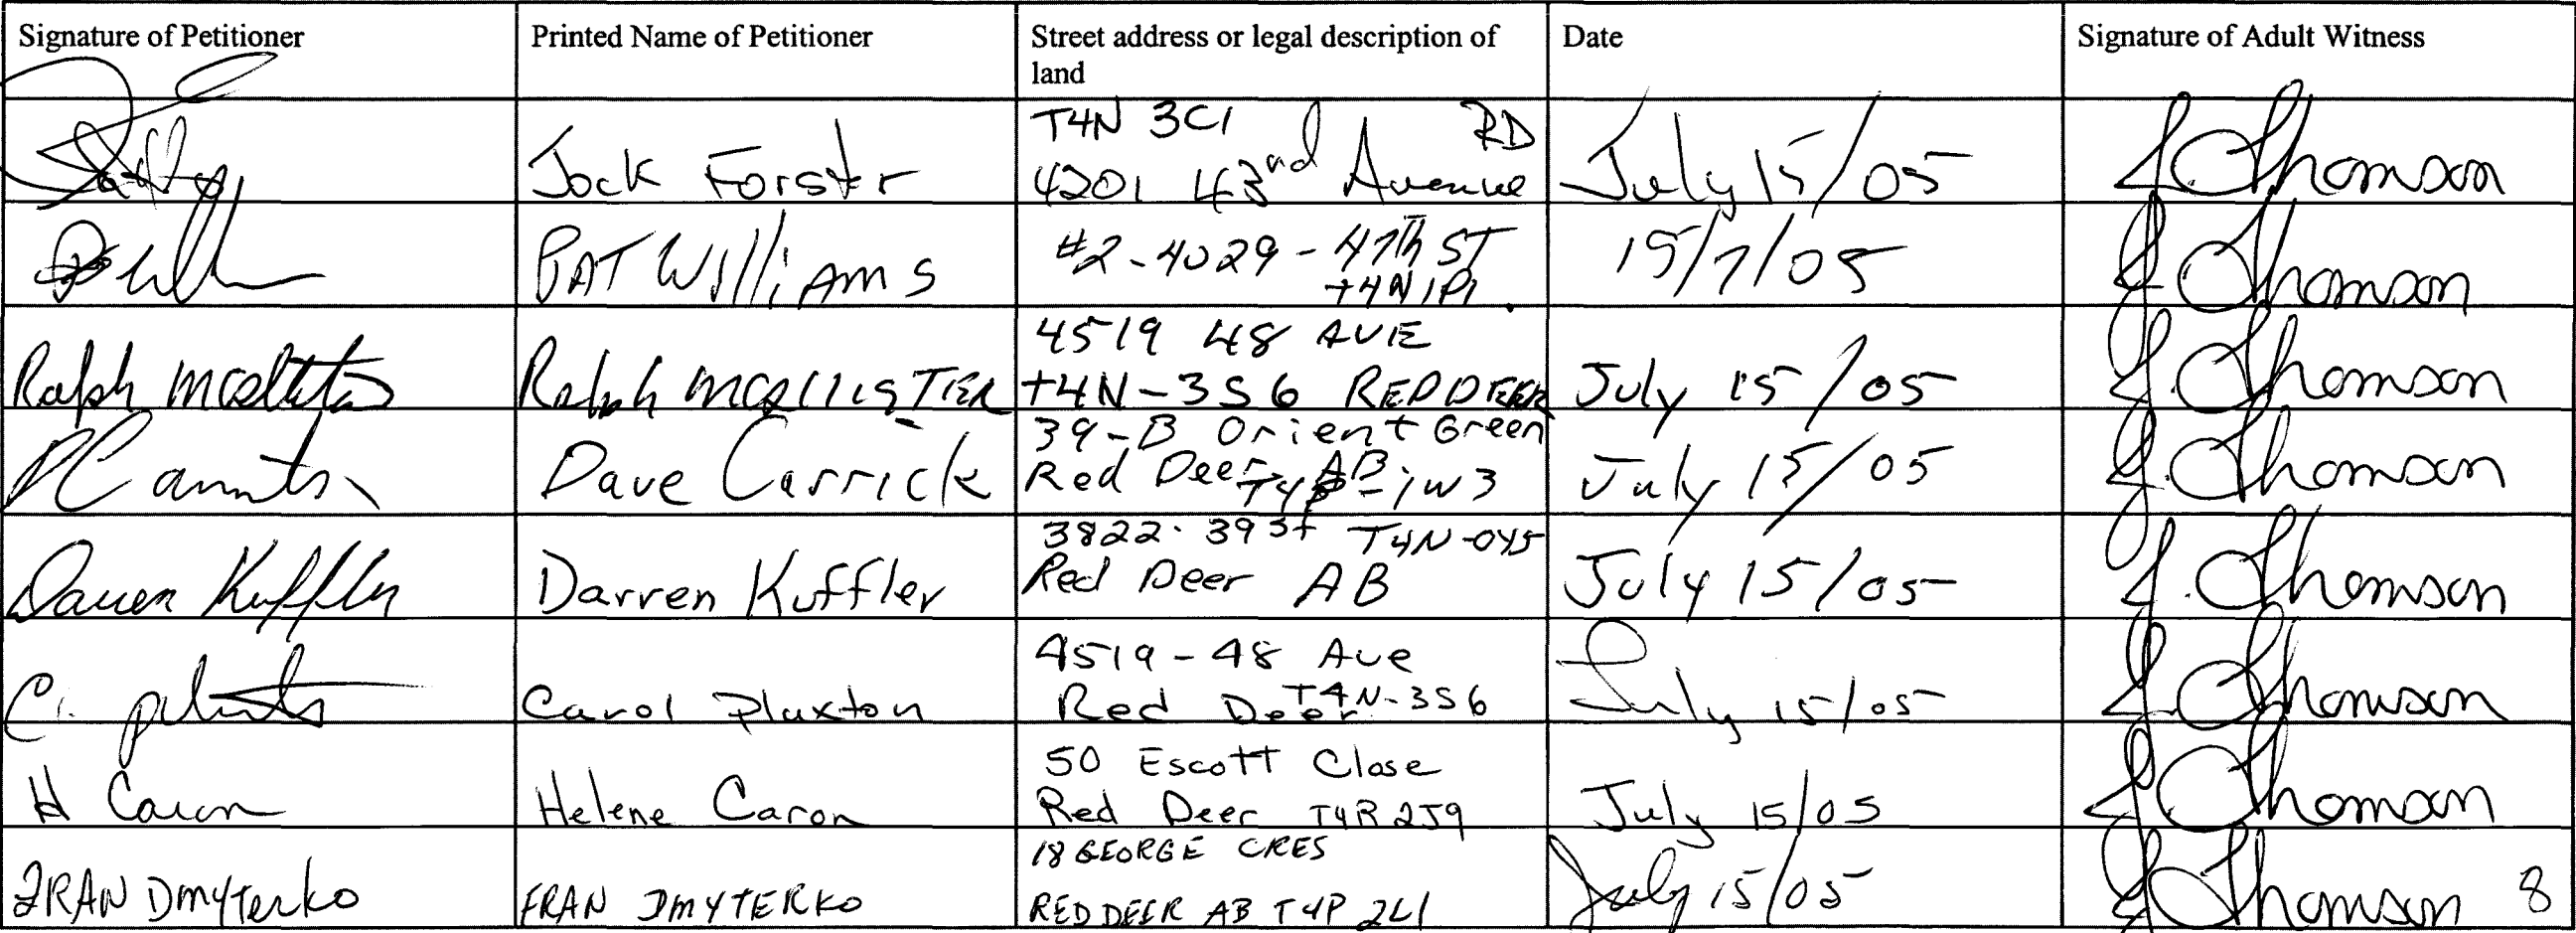 Signature of Petitioner
Printed Name of Petitioner
Street address or legal description of
land
Date
Signature of Adult Witness
Jock Forster
T4N 3C1 RD
4201 43nd Avenue
July 15/05
J. Thomson
PAT WILLIAMS
#2-4029-47th ST
T4N 1P1.
15/7/05
J. Thomson
Ralph McAllister
Ralph MCALLISTER
4519 48 AVE
T4N-3S6 RED DEER
July 15/05
J. Thomson
Dave Carrick
39-B Orient Green
Red Deer AB
T4P-1W3
July 15/05
J. Thomson
Darren Kuffler
Darren Kuffler
3822-39 St T4N-0Y5
Red Deer AB
July 15/05
J. Thomson
C. Plaxton
Carol Plaxton
4519-48 Ave
Red Deer T4N-3S6
July 15/05
J. Thomson
H Caron
Helene Caron
50 Escott Close
Red Deer T4R 2J9
July 15/05
J. Thomson
FRAN Dmyterko
FRAN DMYTERKO
18 GEORGE CRES
RED DEER AB T4P 2L1
July 15/05
J. Thomson
8